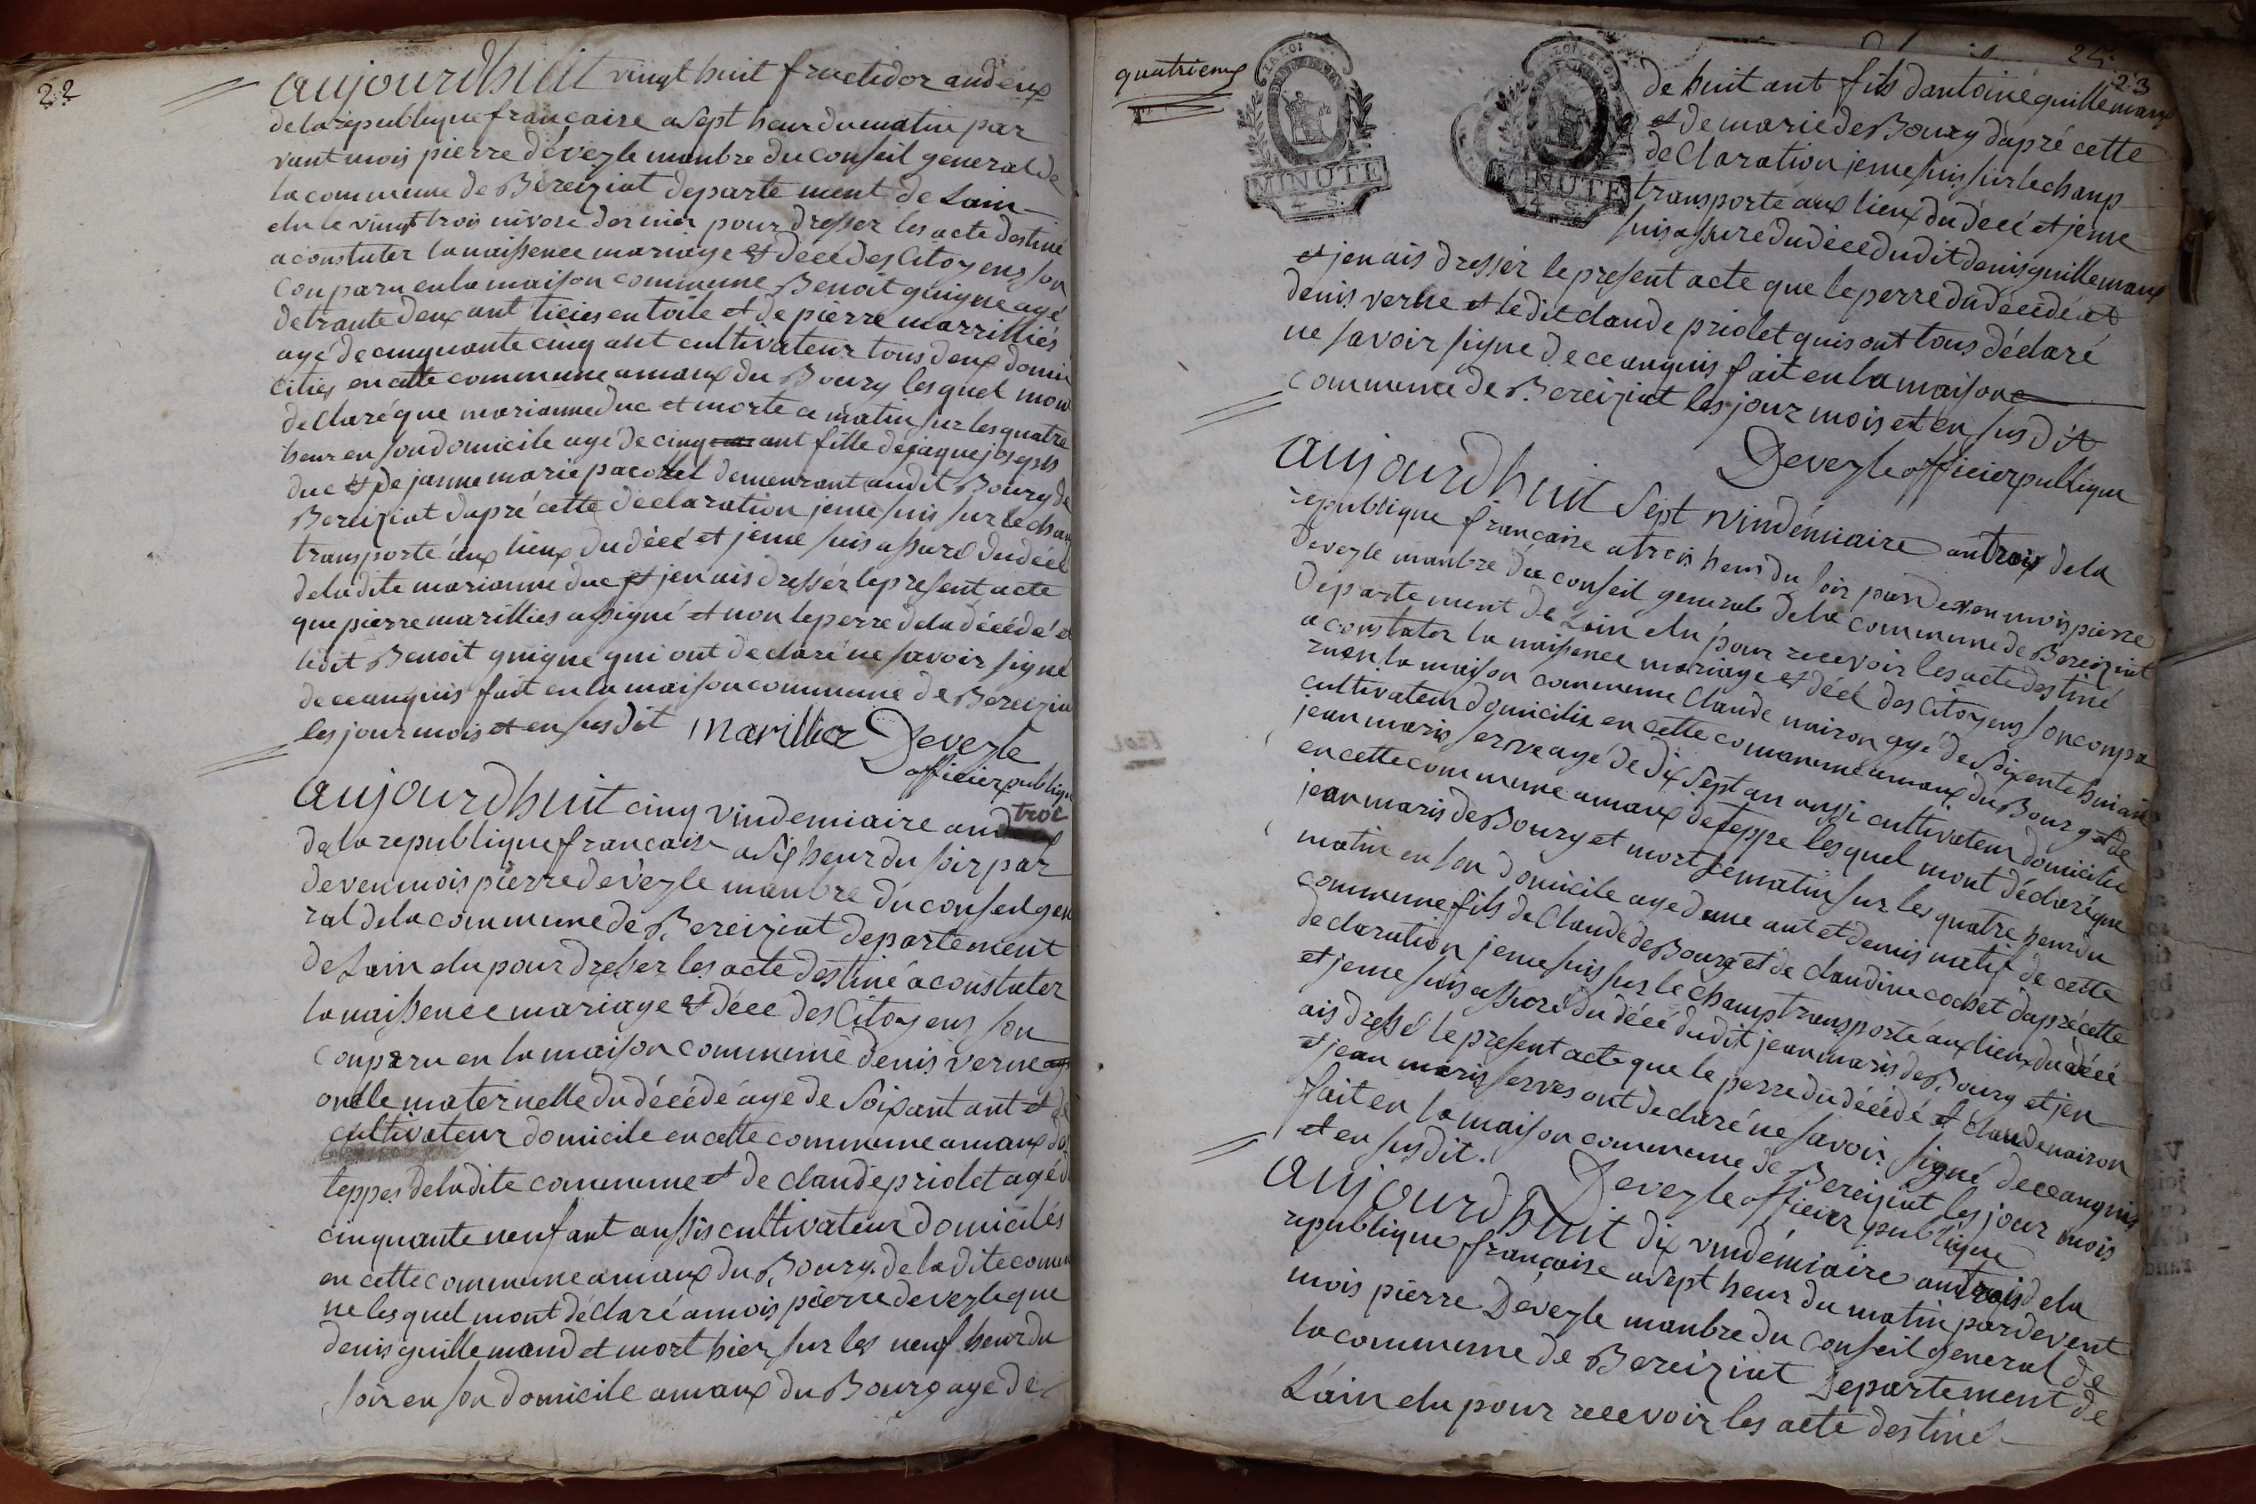 22
aujourdhuit vingt huit fructidor an deux
de la république francaise a sept heur du matin par
vant mois pierre devezle manbre du conseil general de
la commune de Bereiziat departe ment de Lain
elu le vingt trois nivose dernier pour dresser les acte destiné
a constater la naissence mariage et décé des Citoyens son
Conparu en la maison commune Benoit guigne agé
de trante deux ant ticiés en toile et de pierre marrilliés
agé de cinquante cinq ant cultivateur tous deux domi
ciliés en cette commune amaux du Bourg lesquel mon
declaré que marianne duc et morte ce matin sur les quatre
heur en son domicile agé de cinq ant fille de jaque joseph
duc et de janne marie pacottel demeurant audit Bourg de
Bereiziat dapré cette déclaration je me suis sur le chan
transporté aux lieux du décé et je me suis assuré du décé
de la dite marianne duc et jen ais dressér le present acte
que pierre marilliés a signé et non le perre de la décédé et
ledit Benoit guigne qui ont declaré ne savoir signé
de ce anquis fait en la maison commune de Bereizia
les jour mois et en susdit Marillier Devezle
officier publiqu
aujourdhuit cinq vindemiaire an troi
de la republique francaise a six heur du soir par
deven mois pierre devezle manbre du conseil gen
ral de la commune de Bereiziat departement
de Lain elu pour dresser les acte destiné a constater
la naissence mariage et décé des Citoyens son
Conparu en la maison commune denis verne
oncle maternelle du décédé agé de soixant ant et de
cultivateur domicile en cette commune amaux de
teppes de la dite commune et de claude priolet agé d
cinquante neuf ant aussis cultivateur domiciliés
en cette commune amaux du Bourg de la dite comm
ne lesquel mont déclaré amois pierre devezle que
denis guillemand et mort hier sur les neuf heur du
soir en son domicile amaux du Bourg agé de
quatrieme
LA LOI
MINUTE
4 S.
LA LOI
MINUTE
4 S.
24
23
de huit ant fils dantoine guillemaux
et de marie de Bourg dapré cette
declaration je me suis sur le champ
transporté aux lieux du décé et je me
suis assuré du décé du dit denis guillemaux
et jen ais dressér le present acte que le perre du décédé et
denis verne et ledit claude priolet quis ont tous déclaré
ne savoir signe de ce anquis fait en la maison
commune de Bereiziat les jour mois et en susdit
Devezle officier publique
aujourdhuit sept vindémiaire an trois de la
republique francaise a trois heur du soir pardeven mois pierre
devezle manbre du conseil general de la commune de Bereiziat
departement de Lain elu pour recevoir les acte destiné
a constater la naissence mariage et décé des Citoyens son compa
ru en la maison commune Claude nairon agé de soixente huit an
cultivateur domicilié en cette commune amaux du Bourg et de
jean maris serve agé de dix sept an aussi cultivateur domicilié
en cette commune amaux de teppe lesquel mont déclaré que
jean maris de Bourg et mort ce matin sur les quatre heur du
matin en son domicile age dune ant et demis natif de cette
commune fils de Claude de Bourg et de claudine cochet dapré cette
declaration je me suis sur le champ transporté aux lieux du décé
et je me suis assuré du décé dudit jean maris de Bourg et jen
ais dressé le present acte que le perre du décédé et Claude nairon
et jean maris serves ont declaré ne savoir signé de ce anquis
fait en la maison commune de Bereiziat les jour mois
et en susdit. Devezle officier publique
aujourdhuit dix vindémiaire an trois de la
republique francaise a sept heur du matin pardevent
mois pierre Devezle manbre du conseil general de
la commune de Bereiziat Departement de
Lain elu pour recevoir les acte destiné